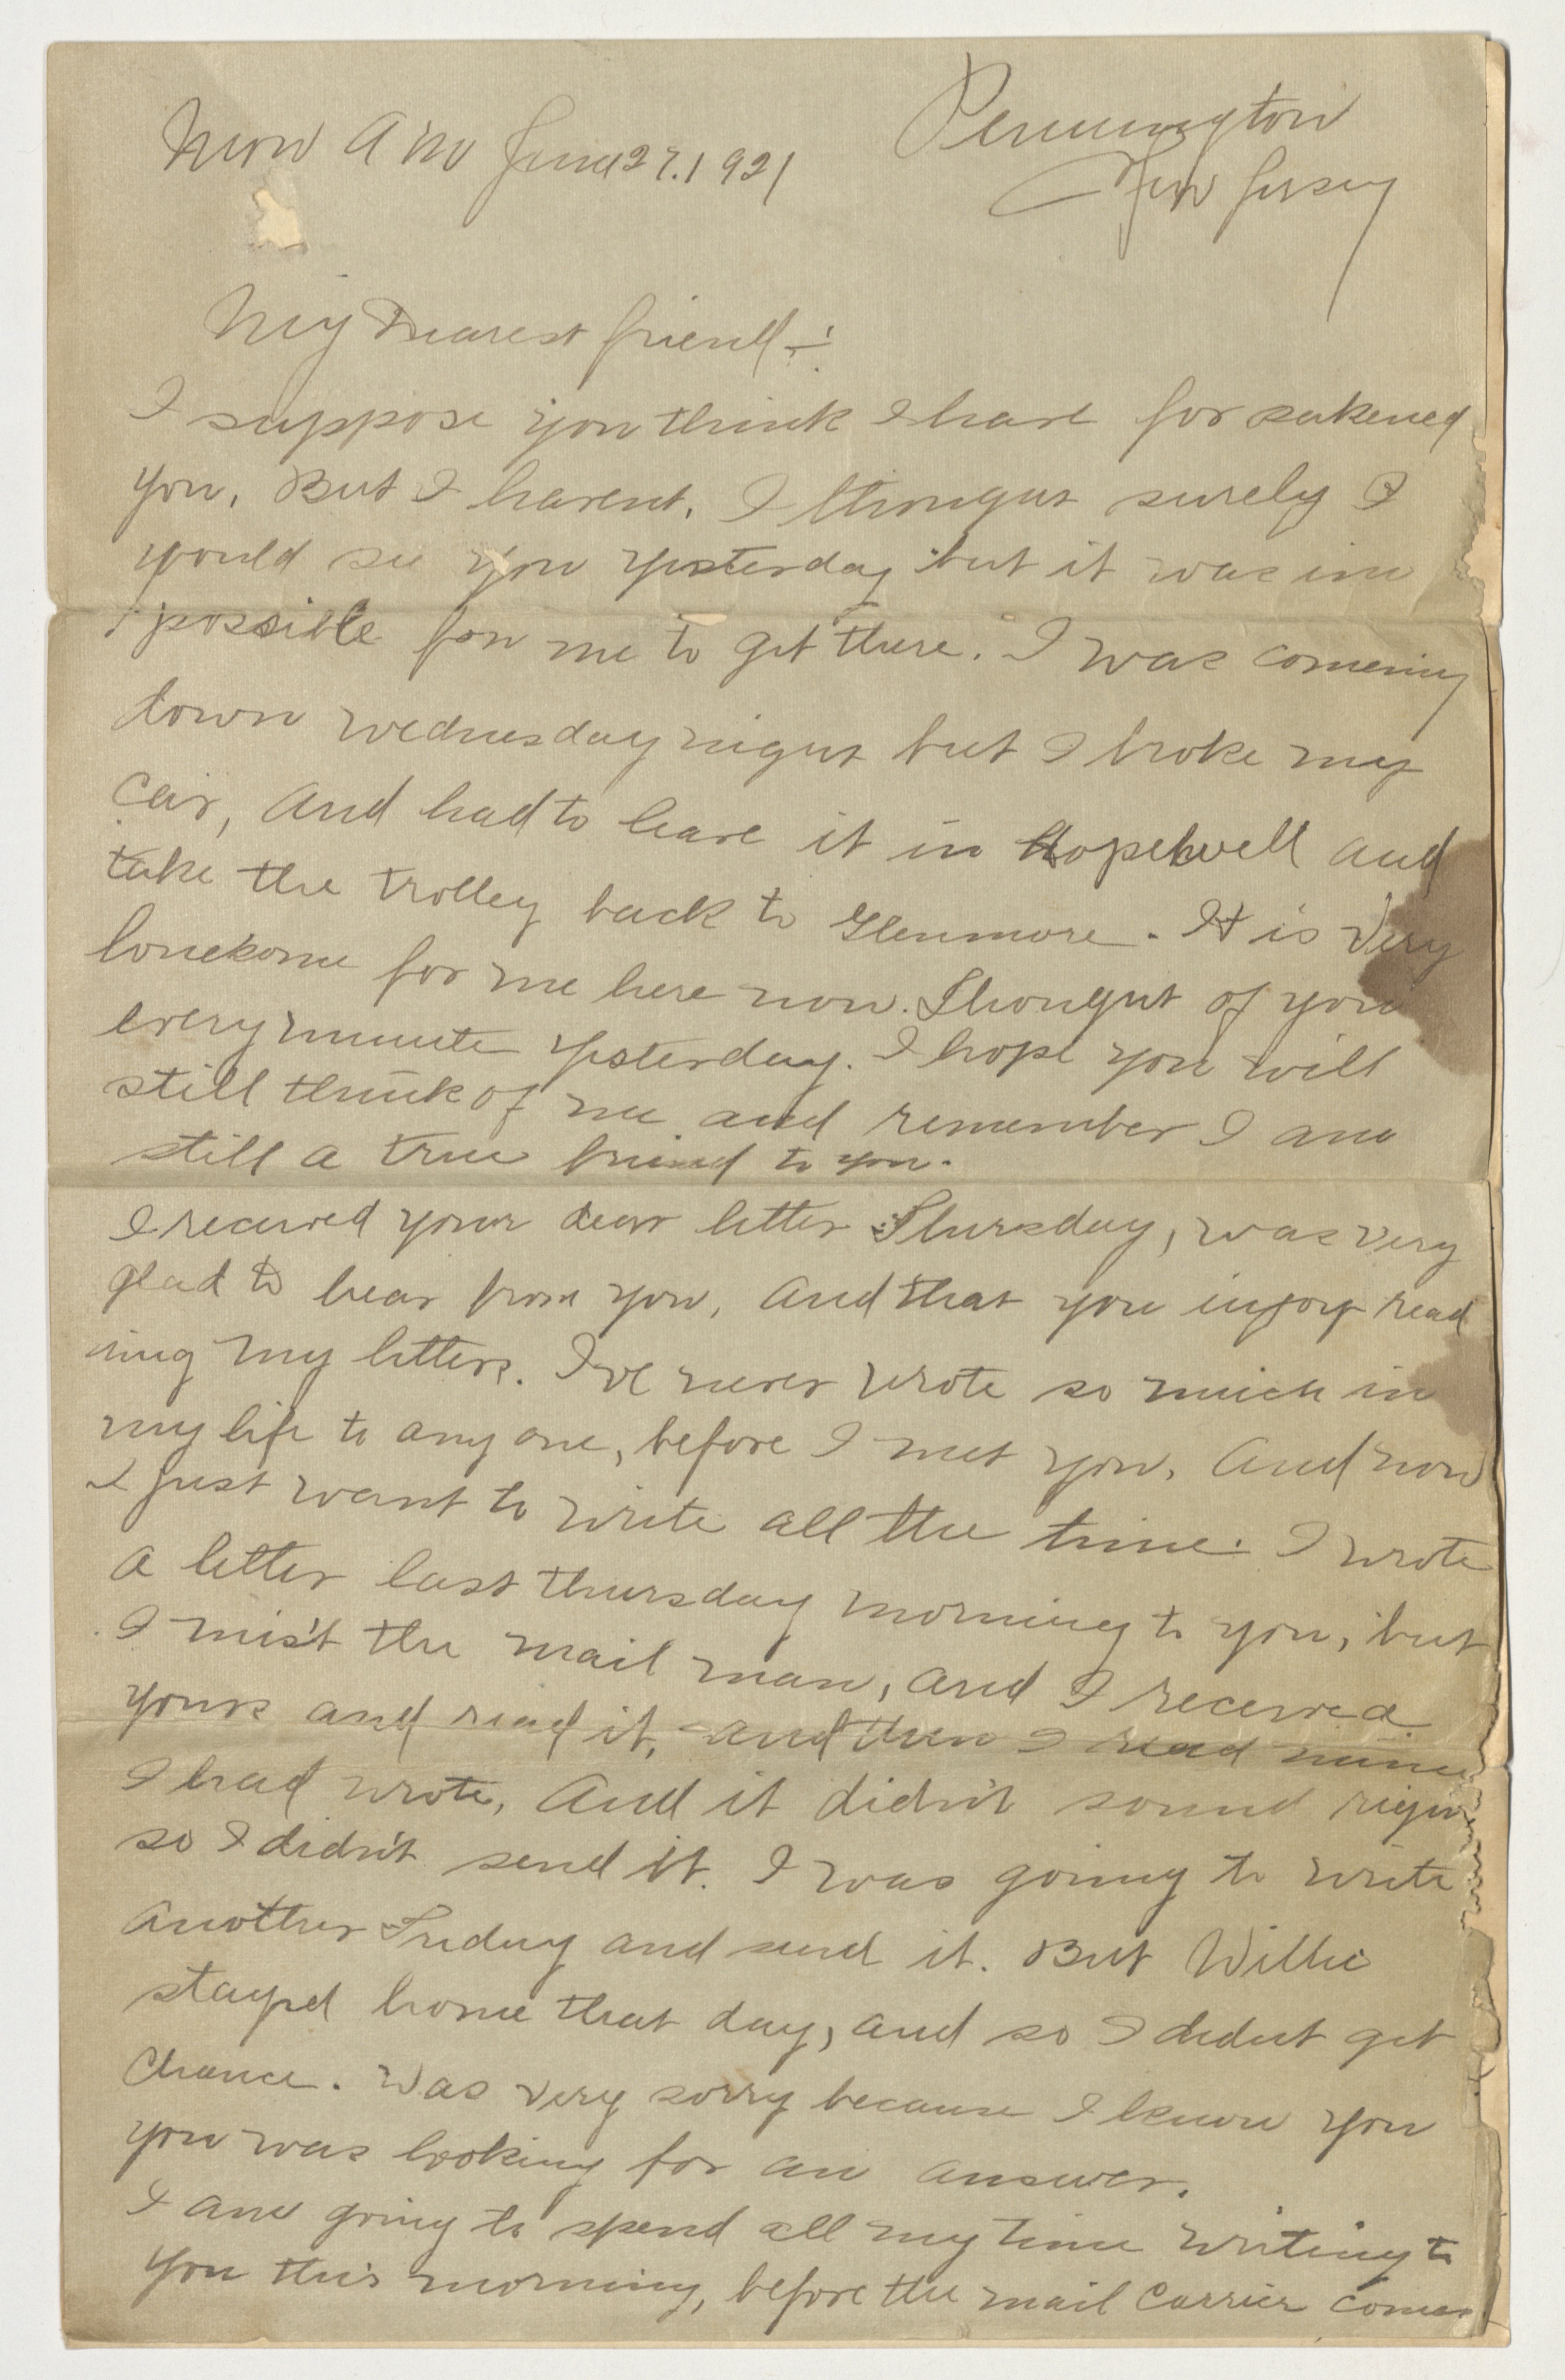 Mon A M June 27. 1921
Pennington
New Jersey
My Dearest friend:-
I suppose you think I have for sakened
you, But I havent, I thought surely I
would see you yesterday but it was im
possible for me to get there. I was comeing
down wednesday night but I broke my
Car, and had to leave it in Hopewell and
take the trolley back to Glenmore. It is very
lonesome for me here now. Thought of you
every minute yesterday. I hope you will
still think of me and remember I am
still a true friend to you.
I received your dear letter Thursday, was very
glad to hear from you, and that you injoy read
ing my letters. I've never wrote so much in
my life to any one, before I met you, and now
I just want to write all the time. I wrote
a letter last thursday morning to you, but
I mis't the mail man, and I received
yours and read it, and then I read mine
I had wrote, And it didn't sound right
so I didn't send it. I was going to write
another Friday and send it. But Willie
stayed home that day, and so I didnt get
Chance. Was very sorry because I knew you
you was looking for an answer.
I am going to spend all my time writing to
you this morning, before the mail Carrier comes